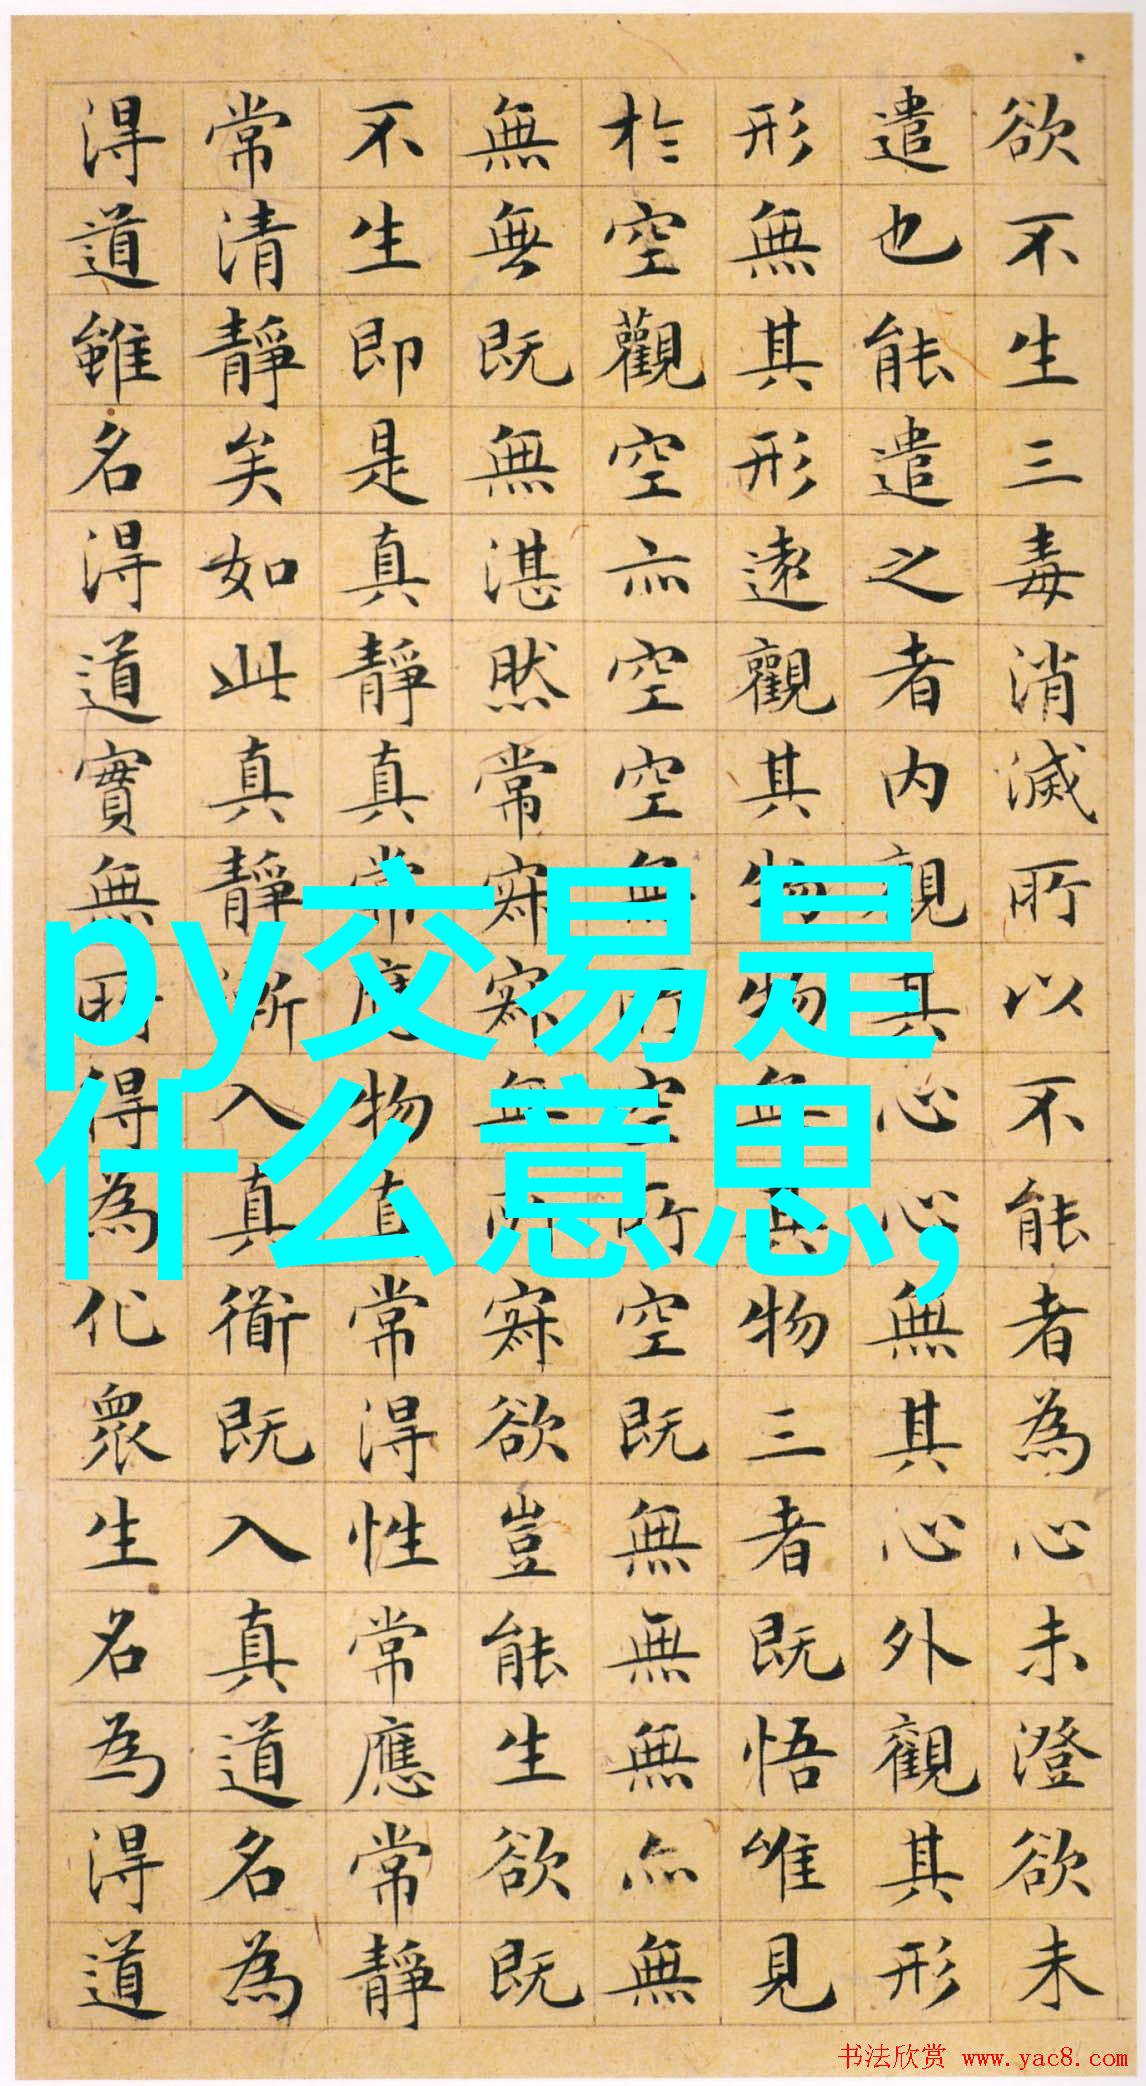 欲不生三毒消滅所以不能者為心未澄欲未
遣也能遣之者内觀其心心無其心外觀其形
形無其形遠觀其物物無其物三者既悟唯見
於空觀空亦空空無所空所空既無無無亦無
無無既無湛然常寂寂無所寂欲豈能生欲既
不生即是真靜真常應物真常得性常應常靜
常清靜矣如此真靜漸入真衜既入真道名為
得道雖名得道實無所得為化眾生名為得道
py交易是
什么意思,
书法欣赏 www.yac8.com